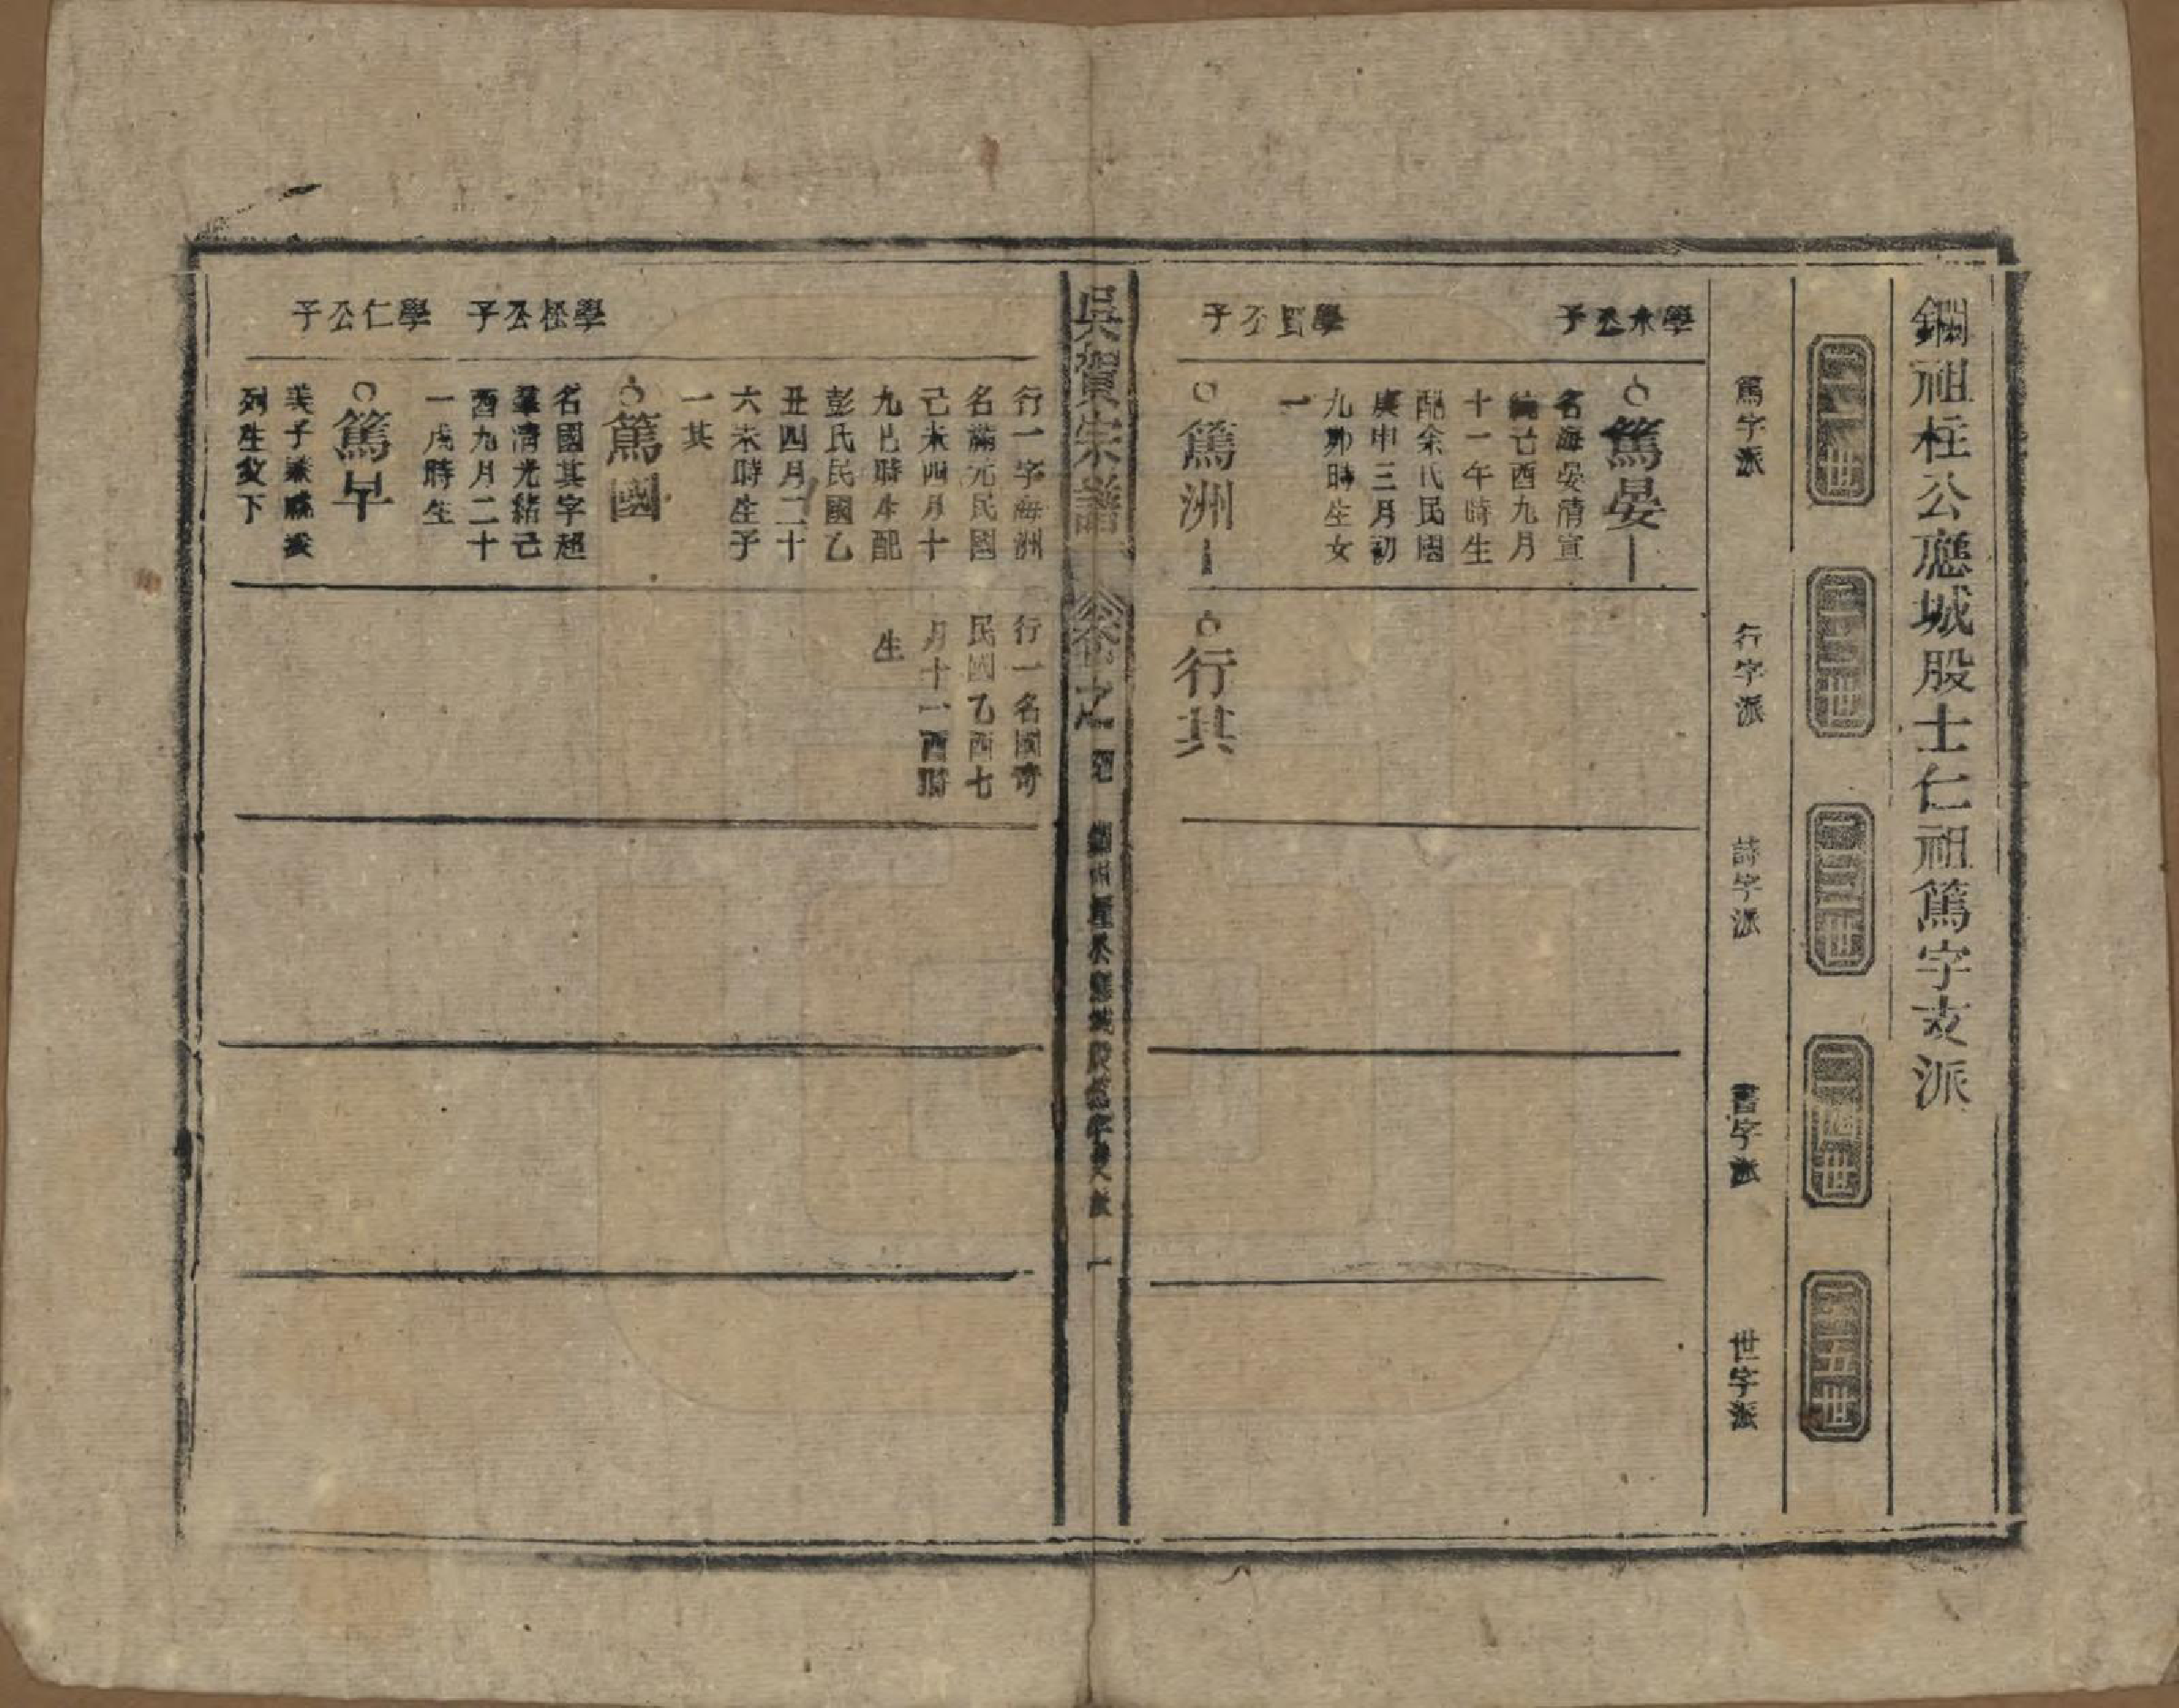 鋼祖柱公應城股士仁祖篤字支派
二一世
二二世
二三世
二四世
二五世
篤字派
行字派
詩字派
書字派
世字派
學永公子
篤晏
名海晏清宣
統己酉九月
十一午時生
配余氏民國
庚申三月初
九卯時生女
一
學賢公子
篤洲
行其
吳賀宗譜
卷之
一
行一字海洲
名滿元民國
己未四月十
九巳時生配
彭氏民國乙
丑四月二十
六未時生子
一其
行一名國奇
民國乙酉七
月十一酉時
生
學松公子
篤國
名國其字超
羣清光緒己
酉九月二十
一戌時生
學仁公子
篤早
美子
列生父下